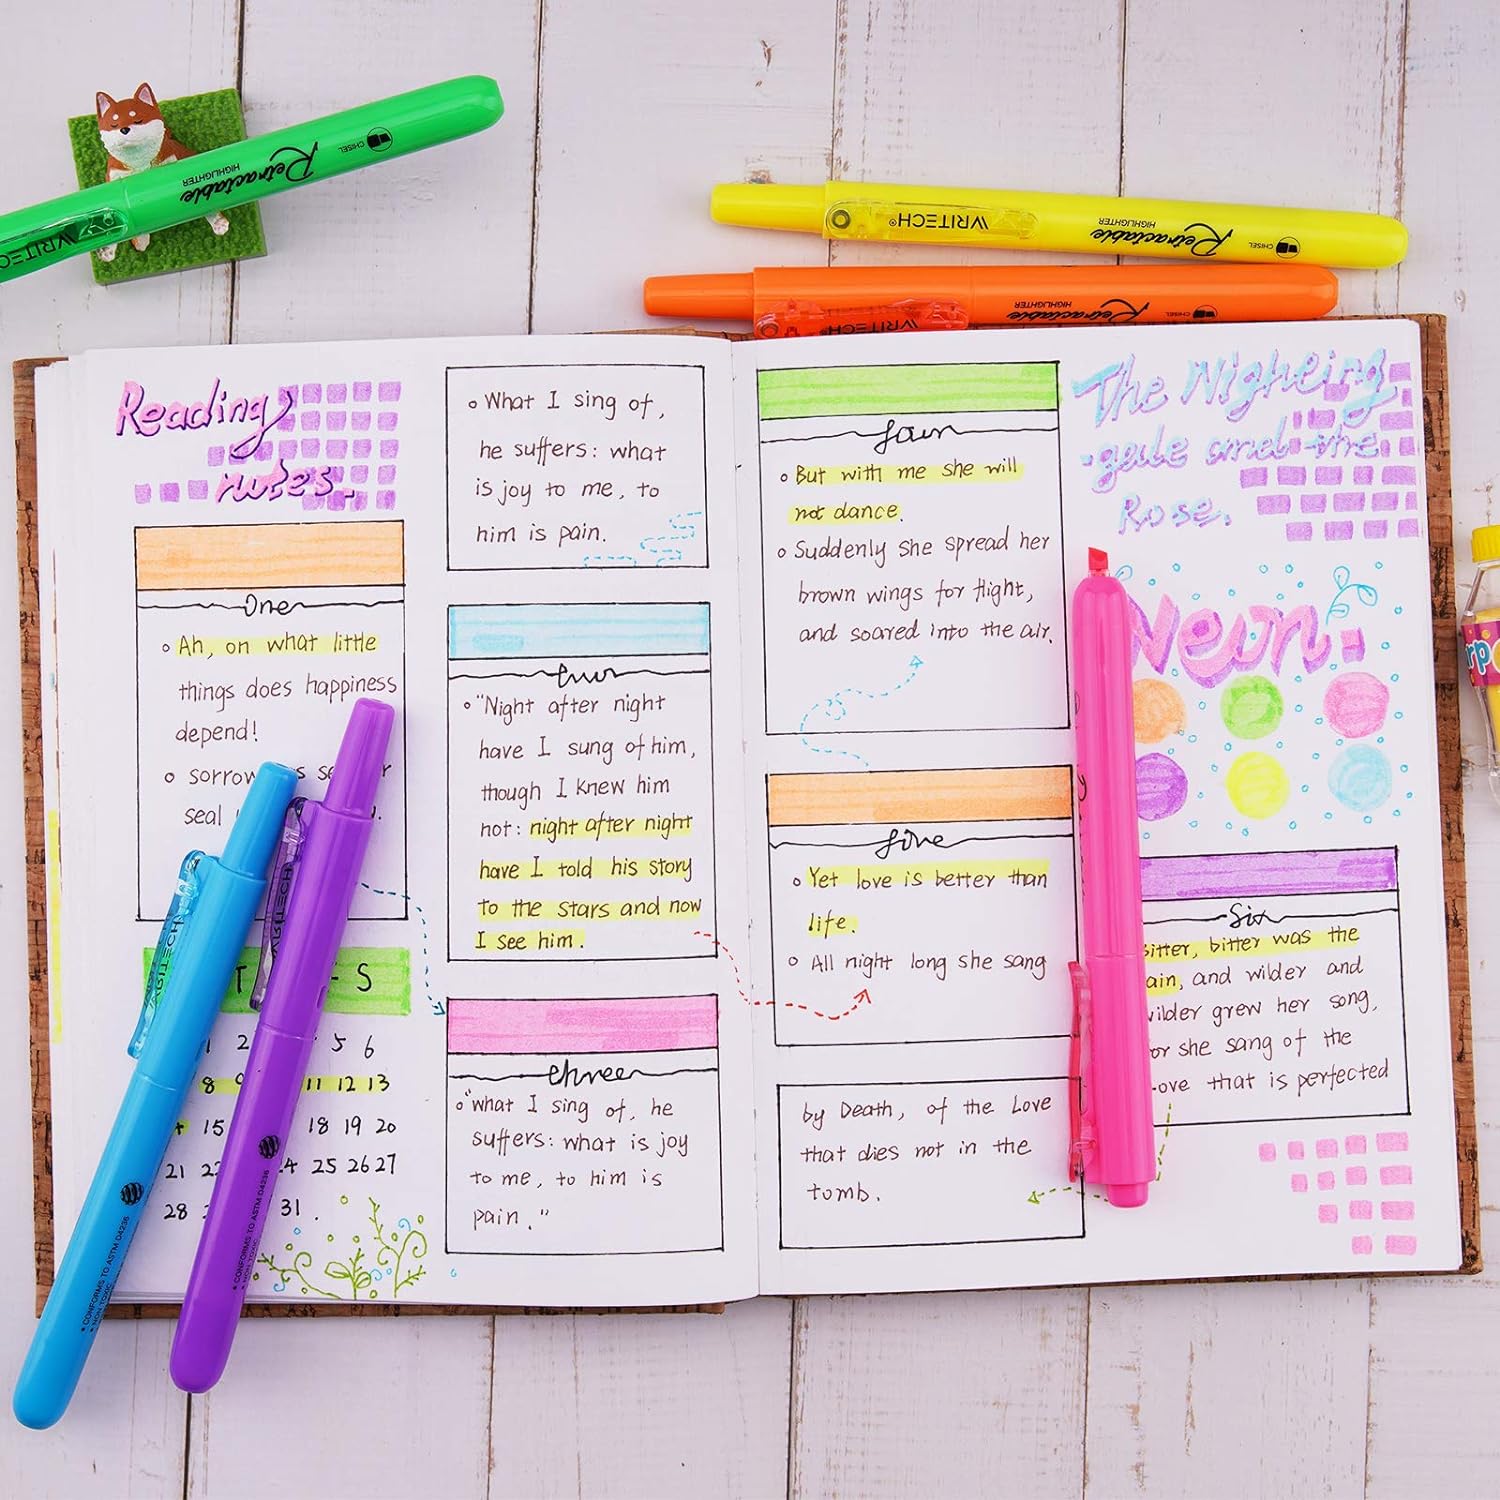 Reading
notes.
One
Ah, on what little
things does happiness
depend!
sorrow
seal
T S
1 2 5 6
8 9 11 12 13
15 18 19 20
21 22 24 25 26 27
28 31.
What I sing of,
he suffers: what
is joy to me, to
him is pain.
two
"Night after night
have I sung of him,
though I knew him
not: night after night
have I told his story
to the stars and now
I see him.
three
"what I sing of, he
suffers: what is joy
to me, to him is
pain."
four
But with me she will
not dance.
Suddenly she spread her
brown wings for flight,
and soared into the air.
five
Yet love is better than
life.
All night long she sang
by Death, of the Love
that dies not in the
tomb.
The Nigheing
-gale and the
Rose.
Neon.
Six
bitter, bitter was the
ain, and wilder and
wilder grew her song,
for she sang of the
Love that is perfected
WRITECH
Retractable
HIGHLIGHTER
CHISEL
WRITECH®
Retractable
HIGHLIGHTER
CHISEL
WRITECH®
Retractable
HIGHLIGHTER
CHISEL
WRITECH
CONFORMS TO ASTM D4236
NON TOXIC
WRITECH
CONFORMS TO ASTM D4236
NON TOXIC